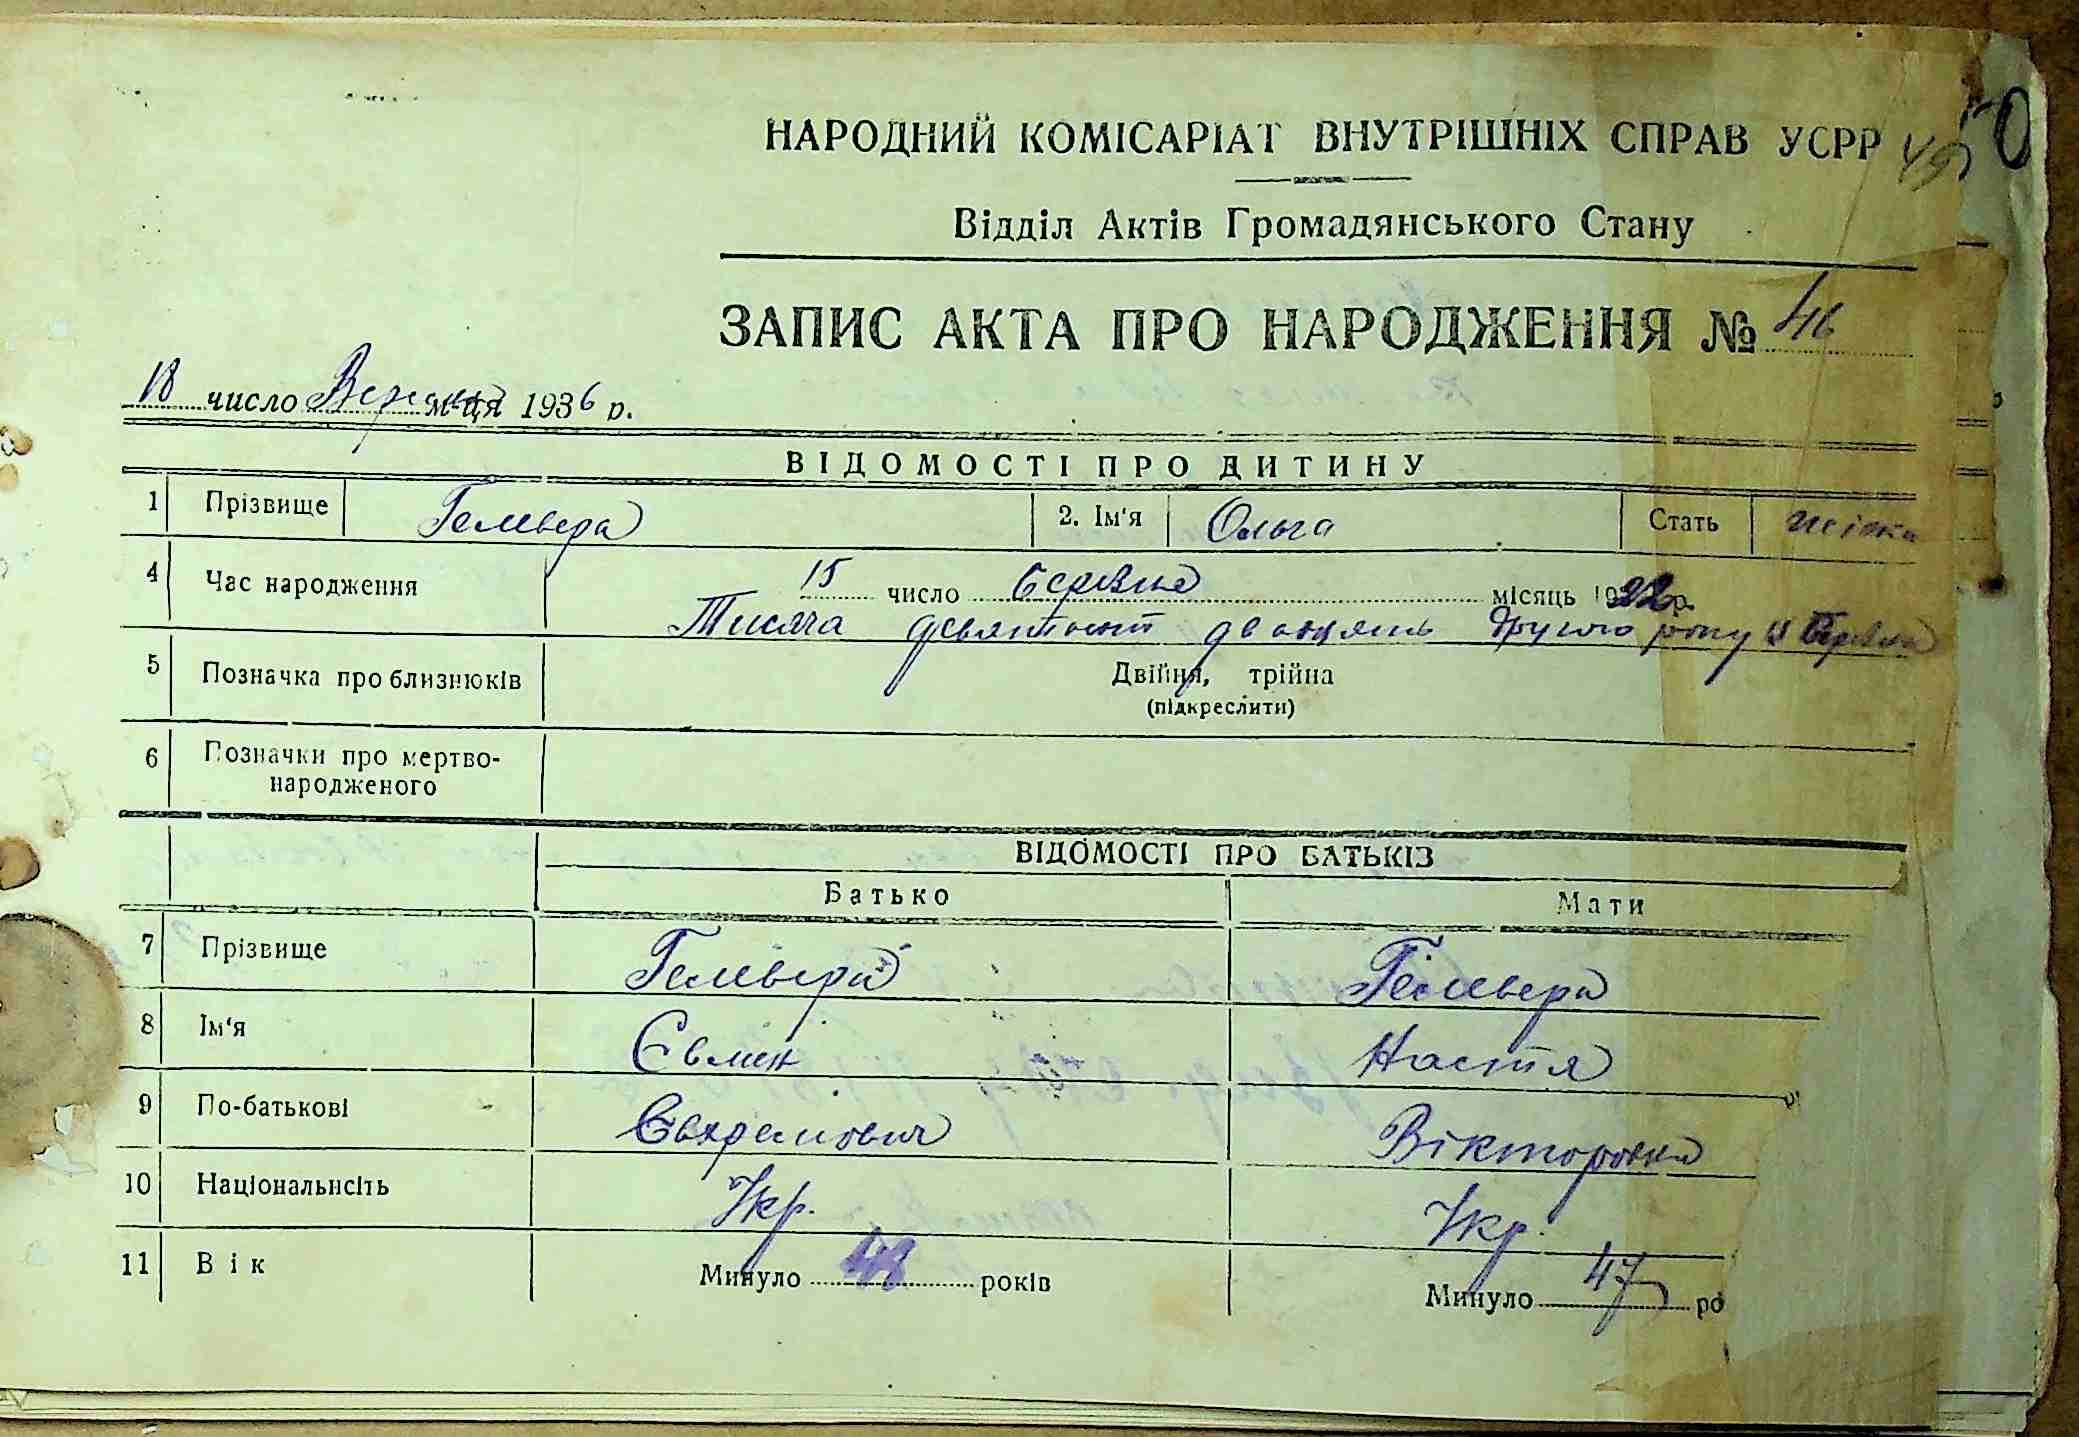 50
49
НАРОДНИЙ КОМІСАРІАТ ВНУТРІШНІХ СПРАВ УСРР
Відділ Актів Громадянського Стану
ЗАПИС АКТА ПРО НАРОДЖЕННЯ № 46
18 число Вересня м-ця 1936 р.
ВІДОМОСТІ ПРО ДИТИНУ
1 Прізвище Гелевера 2. Ім'я Ольга Стать жінка
4 Час народження 15 число березня місяць 1922 р.
Тисяча девятсот двадцять другого року 15 березня
5 Позначка про близнюків Двійня, трійна
(підкреслити)
6 Позначки про мертво-
народженого
ВІДОМОСТІ ПРО БАТЬКІВ
Батько Мати
7 Прізвище Гелевера Гелевера
8 Ім'я Євмен Настя
9 По-батькові Євхремович Вікторовна
10 Національнсіть Укр. Укр.
11 Вік Минуло 48 років Минуло 47 ро